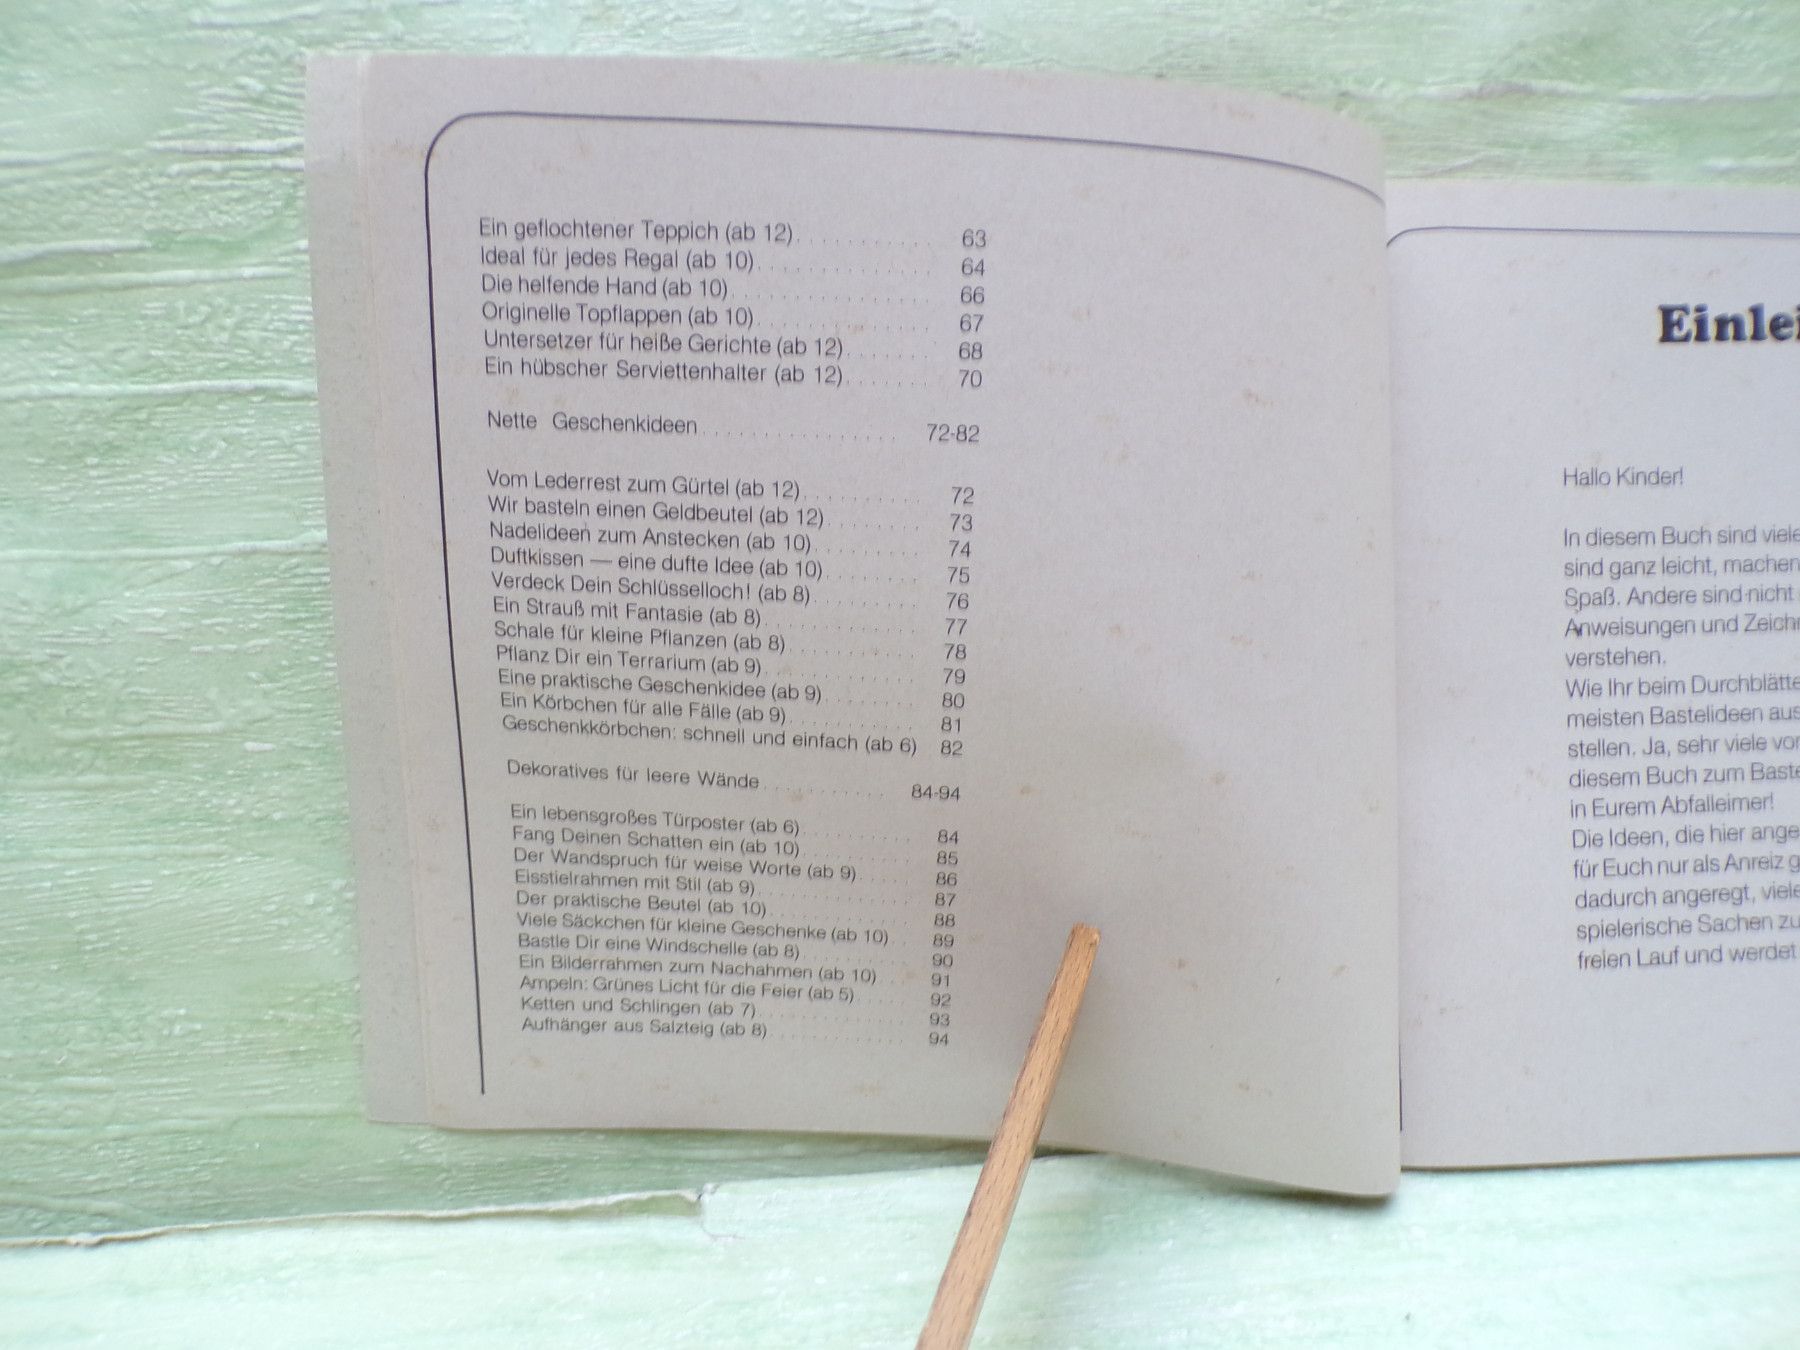 Ein geflochtener Teppich (ab 12) . . . . . . . . . . . 63
Ideal für jedes Regal (ab 10) . . . . . . . . . . . . . . 64
Die helfende Hand (ab 10) . . . . . . . . . . . . . . . . 66
Originelle Topflappen (ab 10) . . . . . . . . . . . . . . 67
Untersetzer für heiße Gerichte (ab 12) . . . . . . . 68
Ein hübscher Serviettenhalter (ab 12) . . . . . . . 70
Nette Geschenkideen . . . . . . . . . . . . . . . . 72-82
Vom Lederrest zum Gürtel (ab 12) . . . . . . . . . . 72
Wir basteln einen Geldbeutel (ab 12) . . . . . . . . 73
Nadelideen zum Anstecken (ab 10) . . . . . . . . . 74
Duftkissen — eine dufte Idee (ab 10) . . . . . . . . 75
Verdeck Dein Schlüsselloch! (ab 8) . . . . . . . . . 76
Ein Strauß mit Fantasie (ab 8) . . . . . . . . . . . . . 77
Schale für kleine Pflanzen (ab 8) . . . . . . . . . . . 78
Pflanz Dir ein Terrarium (ab 9) . . . . . . . . . . . . . 79
Eine praktische Geschenkidee (ab 9) . . . . . . . . 80
Ein Körbchen für alle Fälle (ab 9) . . . . . . . . . . . 81
Geschenkkörbchen: schnell und einfach (ab 6) 82
Dekoratives für leere Wände . . . . . . . . . . 84-94
Ein lebensgroßes Türposter (ab 6) . . . . . . . . . . 84
Fang Deinen Schatten ein (ab 10) . . . . . . . . . . 85
Der Wandspruch für weise Worte (ab 9) . . . . . 86
Eisstielrahmen mit Stil (ab 9) . . . . . . . . . . . . . . 87
Der praktische Beutel (ab 10) . . . . . . . . . . . . . 88
Viele Säckchen für kleine Geschenke (ab 10) . . 89
Bastle Dir eine Windschelle (ab 8) . . . . . . . . . . 90
Ein Bilderrahmen zum Nachahmen (ab 10) . . . 91
Ampeln: Grünes Licht für die Feier (ab 5) . . . . . 92
Ketten und Schlingen (ab 7) . . . . . . . . . . . . . . 93
Aufhänger aus Salzteig (ab 8) . . . . . . . . . . . . . 94
Einlei
Hallo Kinder!
In diesem Buch sind viele
sind ganz leicht, machen
Spaß. Andere sind nicht
Anweisungen und Zeich
verstehen.
Wie Ihr beim Durchblätte
meisten Bastelideen aus
stellen. Ja, sehr viele vo
diesem Buch zum Baste
in Eurem Abfalleimer!
Die Ideen, die hier ange
für Euch nur als Anreiz g
dadurch angeregt, viele
spielerische Sachen zu
freien Lauf und werdet